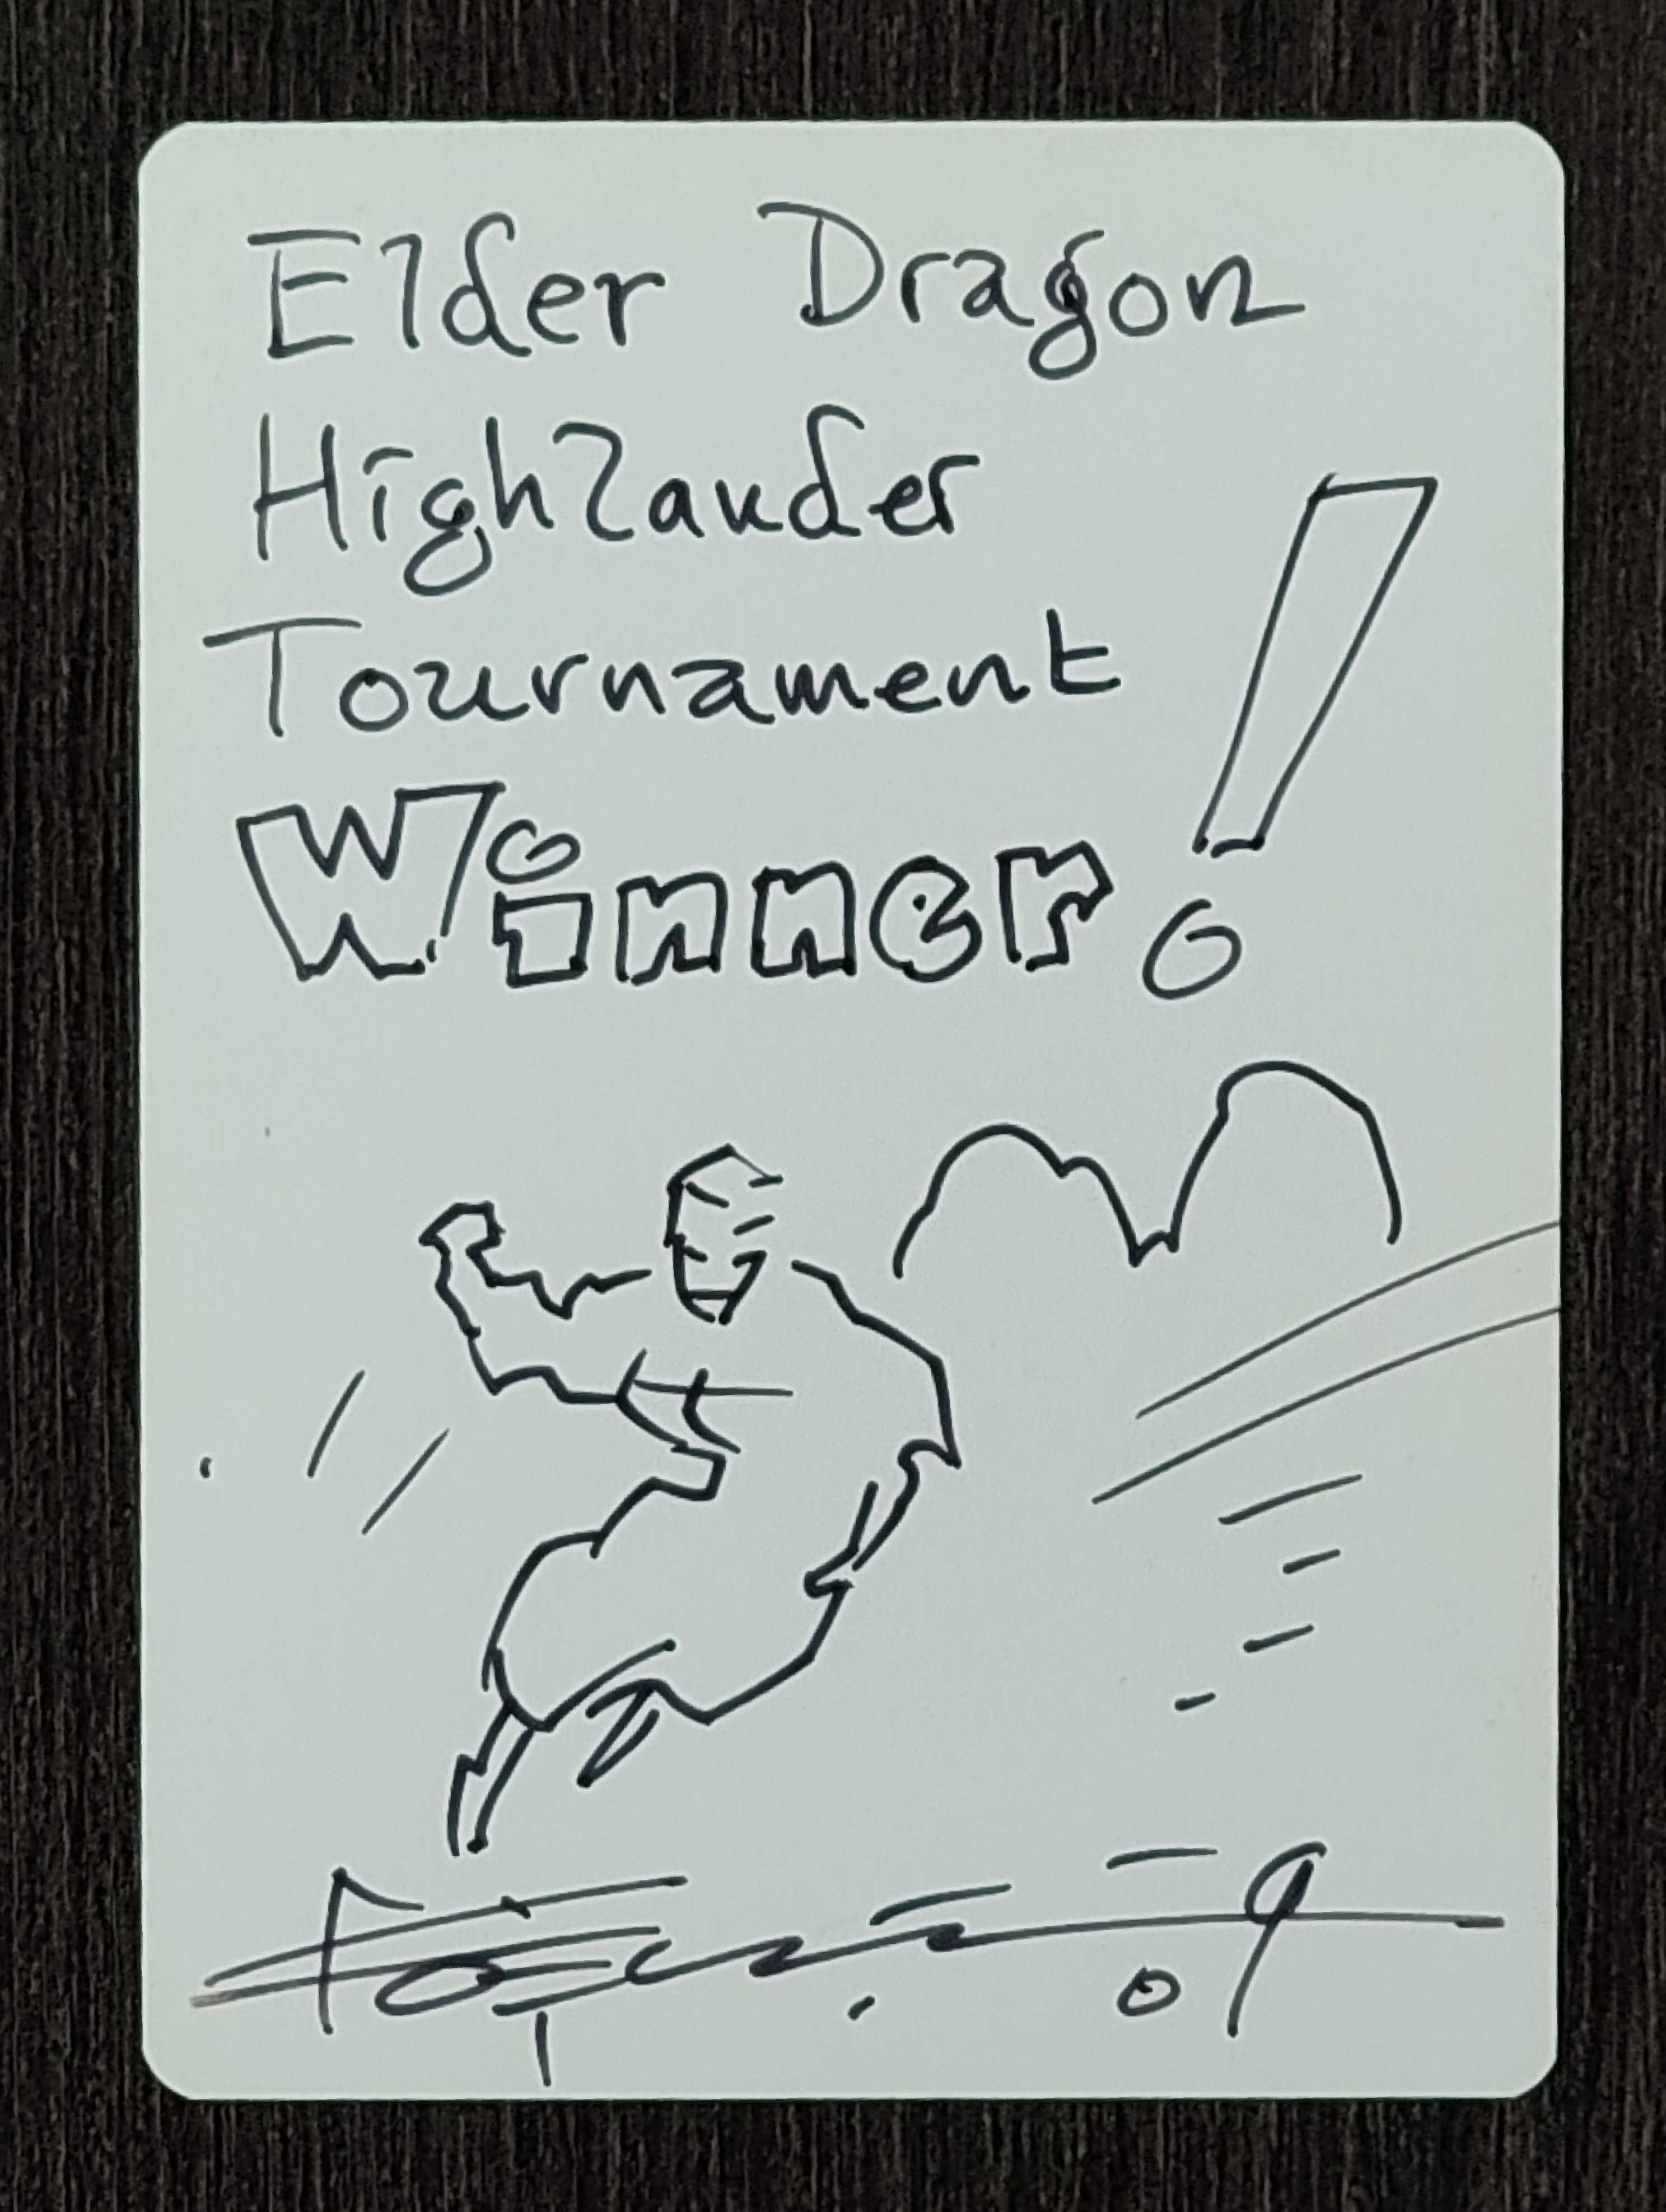 Elder Dragon
Highlander
Tournament
Winner!
09